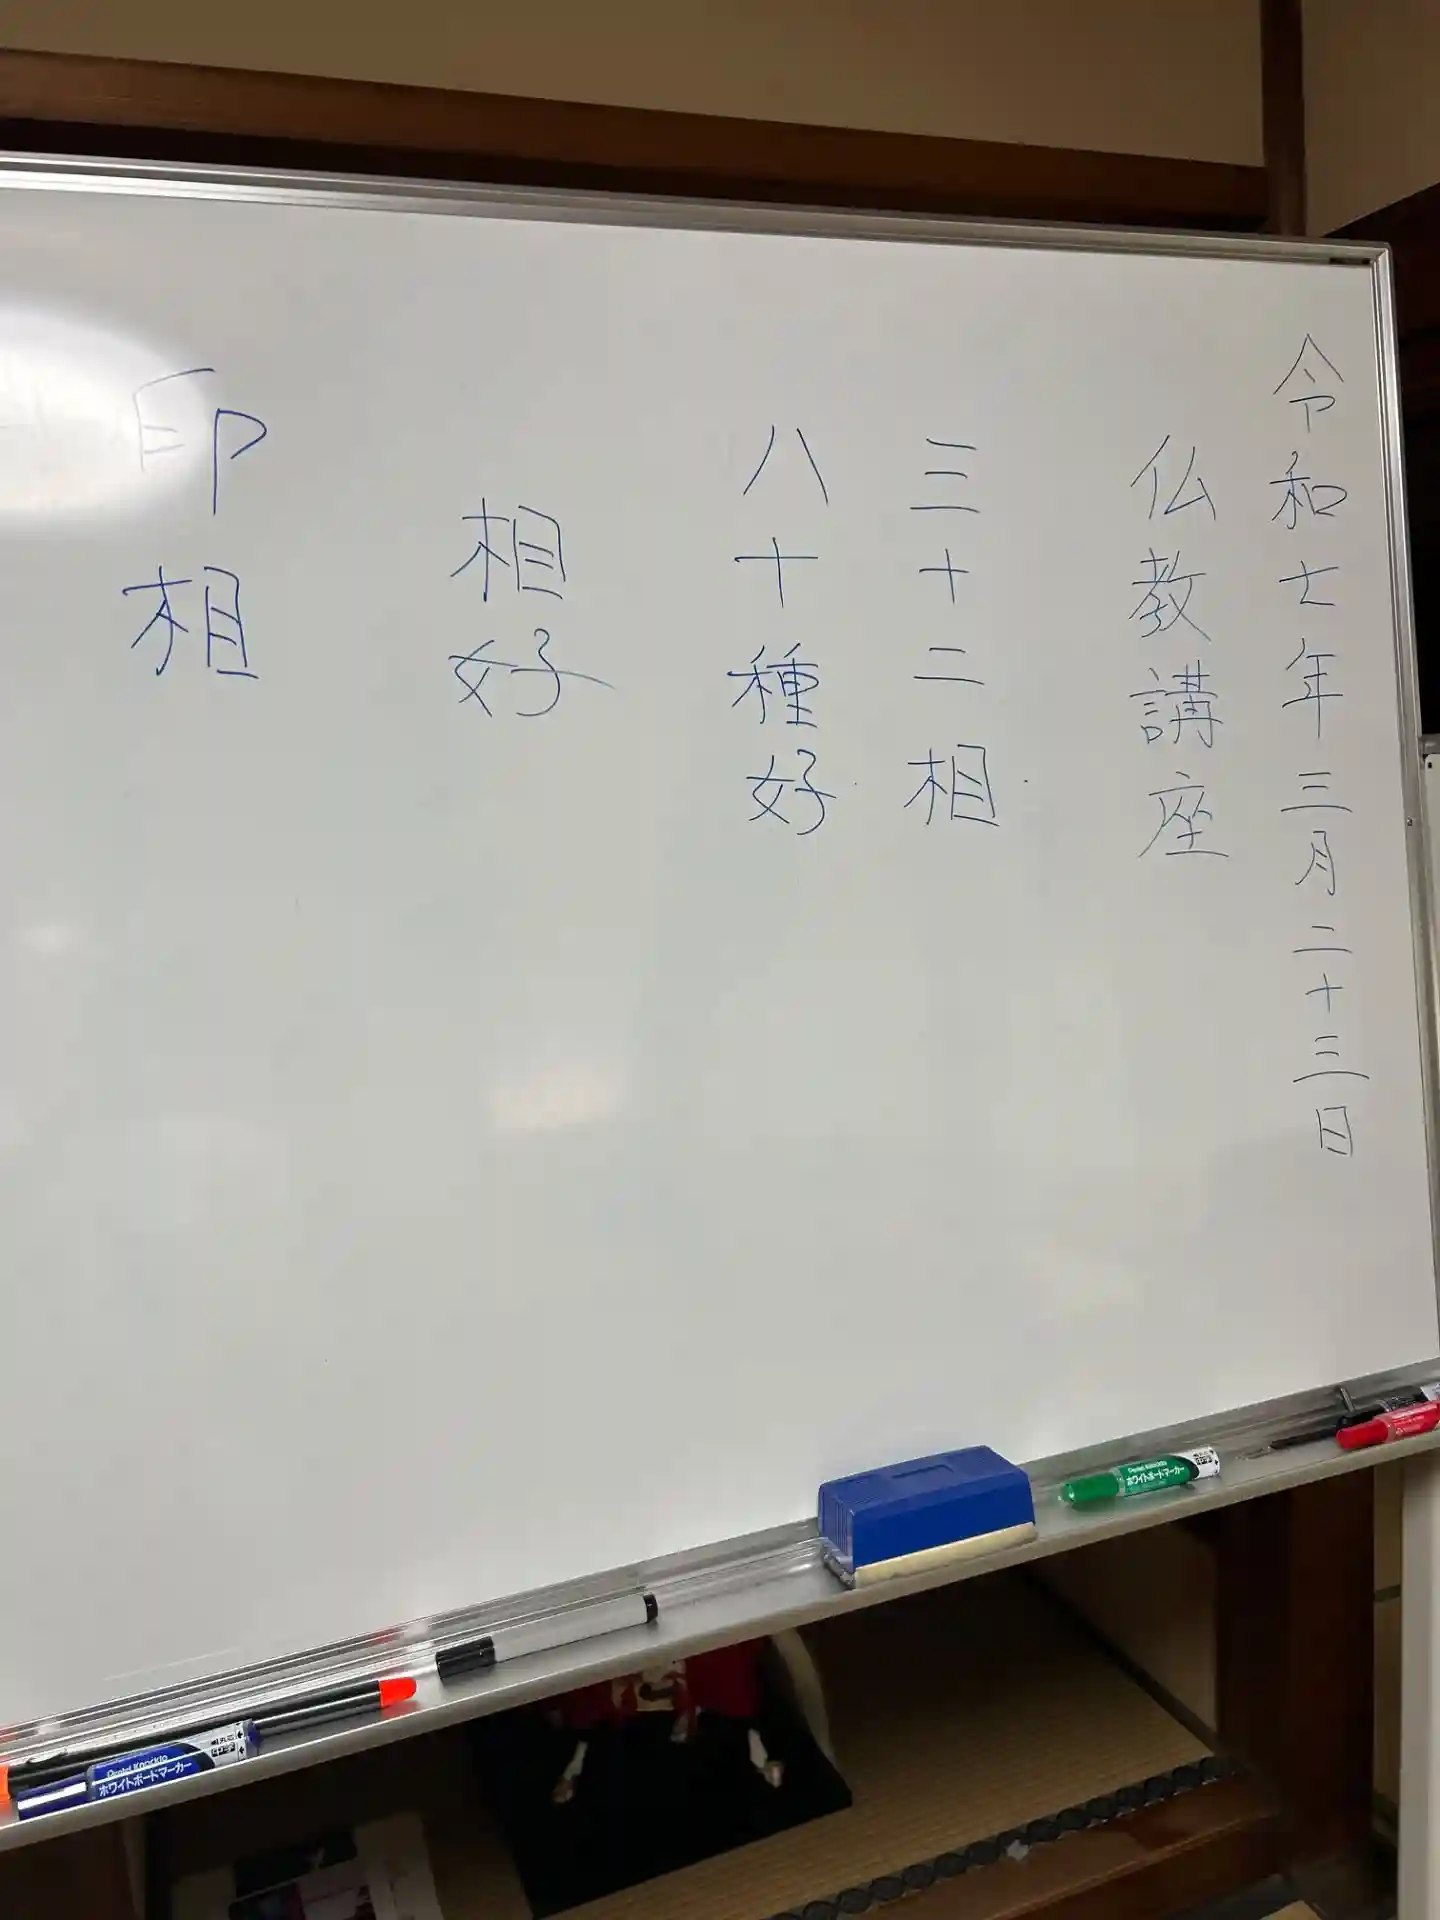 令和七年三月二十三日
仏教講座
三十二相
八十種好
相好
印相
Pentel Knockle
ホワイトボードマーカー
Pentel Knockle
ホワイトボードマーカー